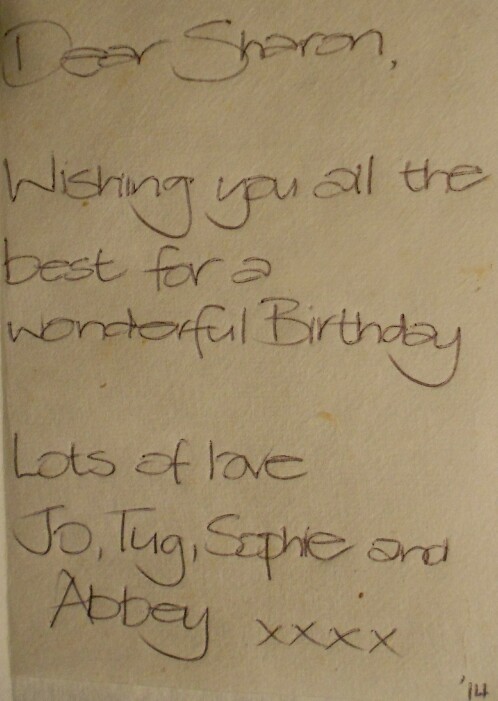 Dear Sharon,
Wishing you all the
best for a
wonderful Birthday
Lots of love
Jo, Tug, Sophie and
Abbey xxxx
'14